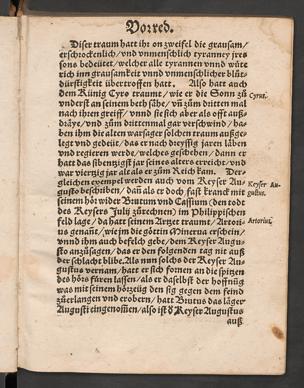 Vorred.
Diser traum hatt ihr on zweifel die grausam/
erschrockenlich/ vnd vnmenschlich tyranney jres
sons bedeütet/ welcher alle tyrannen vnnd wüte
rich inn grausamkeit vnnd vnmenschlicher blůt-
dürstigkeit übertroffen hatt. Also hatt auch
dem Künig Cyro traumt/ wie er die Sonn zů Cyrus.
vnderst an seinem beth sähe/ vñ zům dritten mal
nach ihren greiff/ vnnd sie sich aber als offt auß-
dräye/ vnd zům drittenmal gar verschwind/ ha-
ben ihm die alten warsager solchen traum außge-
legt vnd gedeüt/ das er nach dreyssig jaren låben
vnd regieren werde/ welches geschehen/ dann er
hatt das sibentzigst jar seines alters erreicht/ vnd
war viertzig jar alt als er zum Reich kam. Der-
gleichen exempel werden auch vom Keyser Au- Keyser Au-
gusto beschriben/ dañ als er doch fast kranck mit gustus.
seinem hör wider Brutum vnd Cassium (den tode
des Keysers Julij zürechnen) im Philippischen
feld lage/ da hatt seinem Artzet traumt/ Artori- Artorius.
us genañt/ wie jm die göttin Minerua erschein/
vnnd ihm auch befelch gebe/ dem Keyser Augu-
sto anzůsagen/ das er den folgenden tag nit auß
der schlacht blibe. Als nun solchs der Keyser Au-
gustus vernam/ hatt er sich fornen an die spitzen
des hörs fůren lassen/ als er daselbst der hoffnůg
was mit seinem hörzeüg den sig gegen dem feind
zůerlangen vnd erobern/ hatt Brutus das läger
Augusti eingenoṁen/ also ist dʼ Keyser Augustus
auß